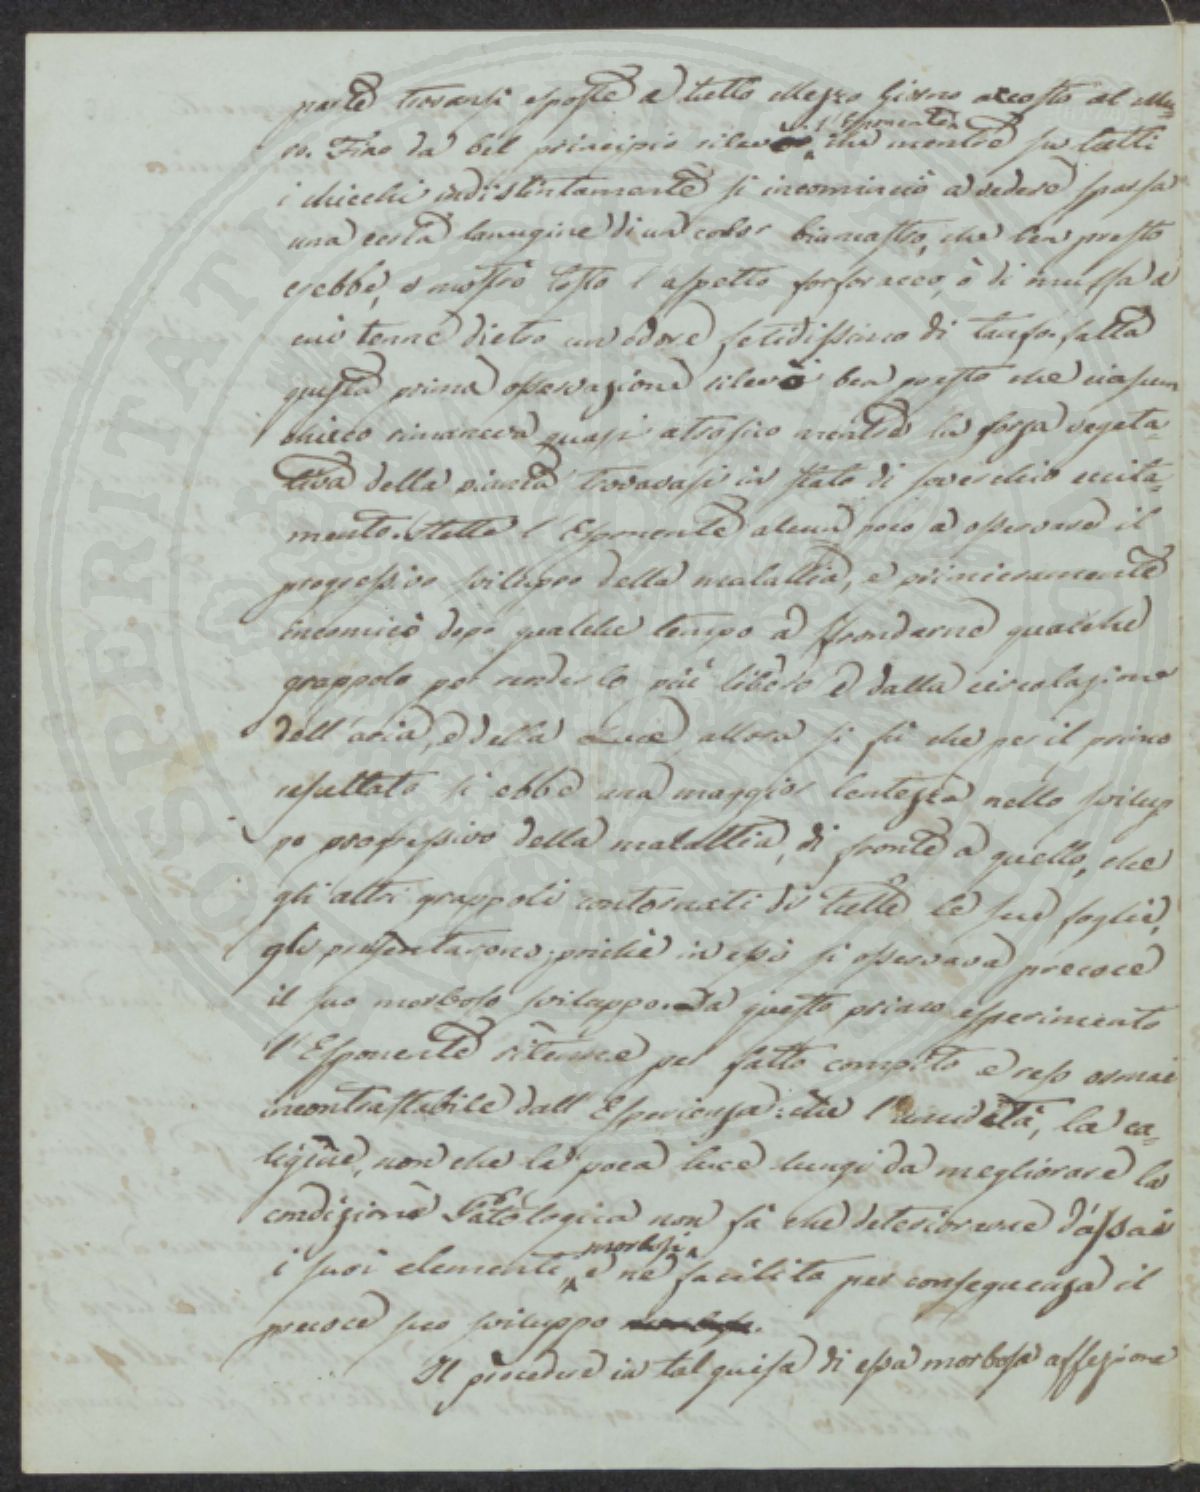 parte trovansi esposte a tutto Mezzo Giorno accosto al Mu=
ro. Fino da bel principio rilevò l'Esponente, che mentre su tutti
i chicchi indistintamente si incominciò a vedere sparsa
una certa lanugine di un color biancastro, che ben presto
crebbe, e mostrò tosto l'aspetto forforaceo, o di muffa a
cui tenne dietro un odore fetidissimo di tanfo. fatta
questa prima osservazione rilevò ben presto che ciascun
chicco rimaneva quasi atrofico mentre la forza vegeta=
tiva della pianta trovavasi in stato di soverchio ecita=
mento. Stette l'Esponente alcun poco a osservare il
progressivo sviluppo della malattia, e primieramente
incomiciò dopo qualche tempo a sfrondarne qualche
grappolo per renderlo più libero e dalla circolazione
dell'aria, e della Luce, allora si fù che per il primo
resultato si ebbe una maggior lentezza nello svilup
po progressivo della malattia, di fronte a quello, che
gli altri grappoli contornati di tutte le sue foglie,
gli presentarono; poichè in essi si osservava precoce
il suo morboso sviluppo. Da questo primo esperimento
l'Esponente ritenne per fatto compito e reso ormai
incontrastabile dall'Esperienza: che l'umidità, la ca=
ligine, non che la poca luce lungi da megliorare la
condizione Patologica non fà che deteriorarne d'assai
i suoi elementi morbosi, e ne facilita per conseguenza il
precoce suo sviluppo.
Il procedere in tal guisa di essa morbosa affezione